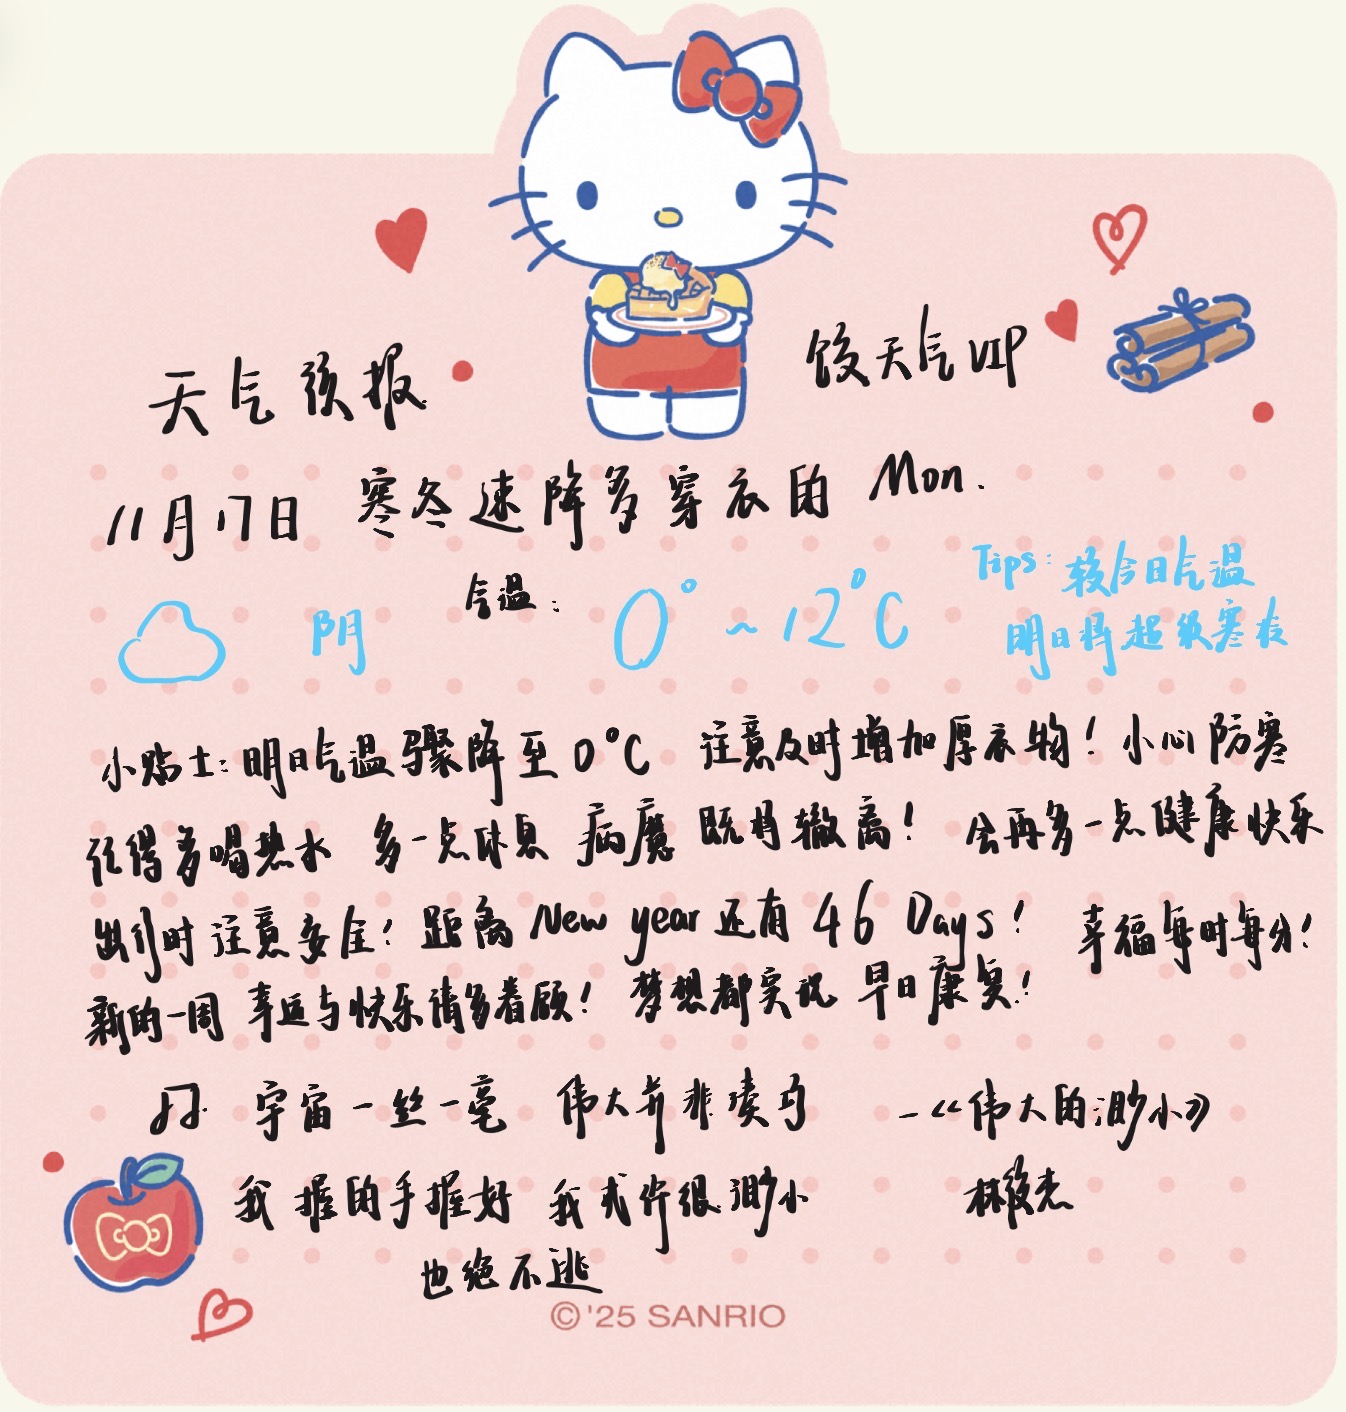 天气预报
饺天气VIP
11月17日 寒冬速降多穿衣的 Mon.
阴 气温: 0°~12°C
Tips:较今日气温
明日将超级寒衣
小贴士:明日气温骤降至0°C 注意及时增加厚衣物!小心防寒
记得多喝热水 多一点休息 病魔既将撤离! 会再多一点健康快乐
出行时注意安全!距离New year还有46 Days! 幸福每时每分!
新的一周 幸运与快乐请多眷顾!梦想都实现 早日康复!
宇宙一丝一毫 伟大并非凑巧 —《伟大的渺小》
我握的手握好 我或许很渺小 林俊杰
也绝不逃
©'25 SANRIO